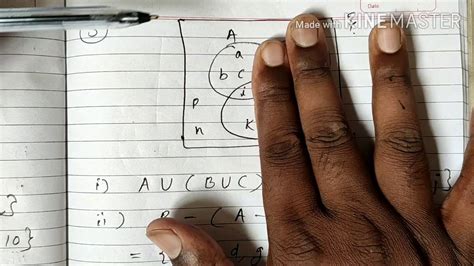 Made with KINEMASTER
Date:
A
a
b c
i
p
n
K
i) A U ( B U C )
ii) - ( A -
10}
= { d g